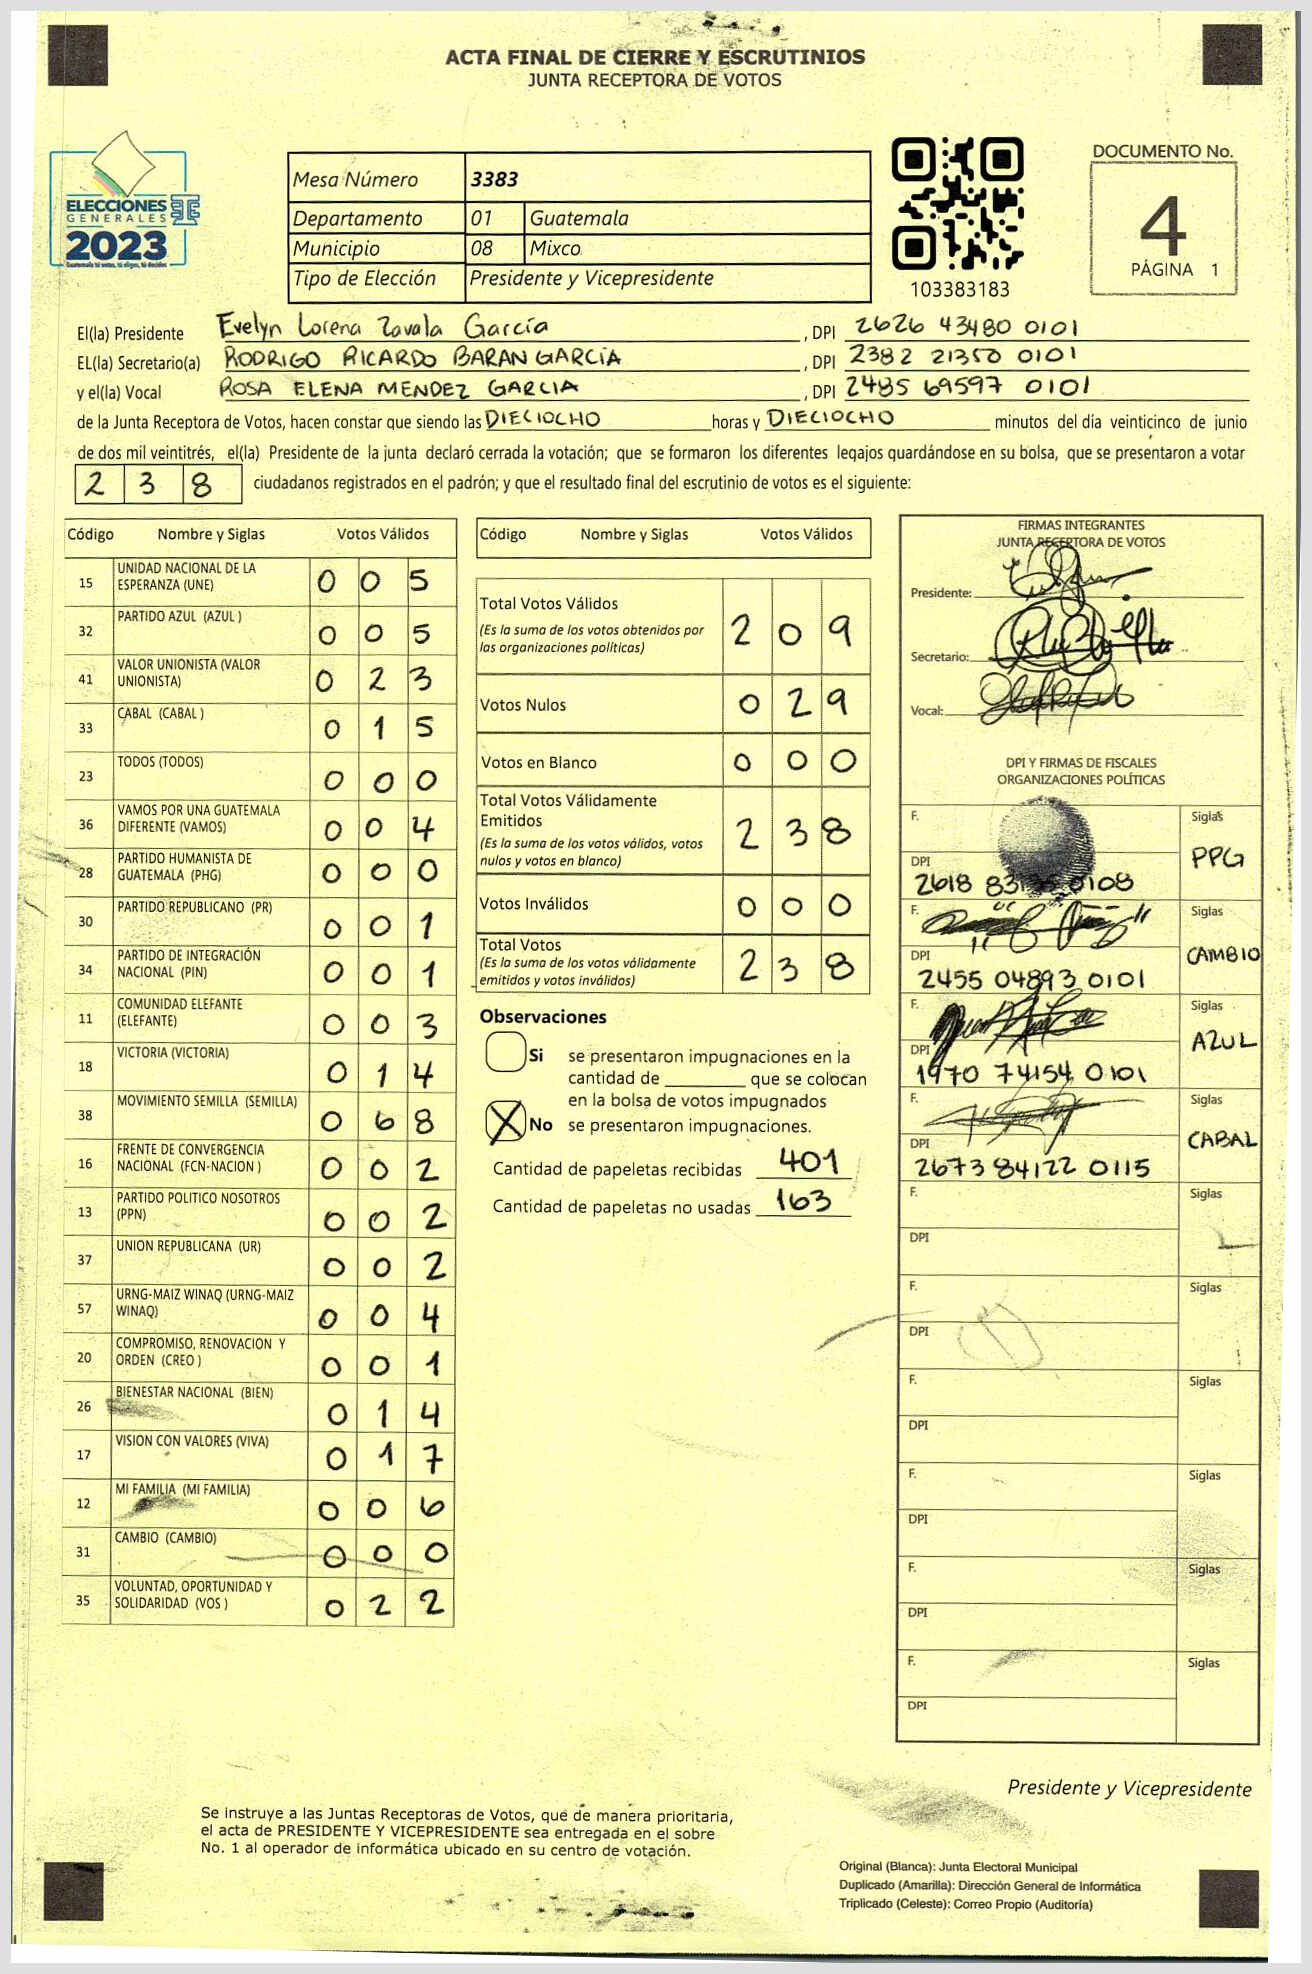 ACTA FINAL DE CIERRE Y ESCRUTINIOS
JUNTA RECEPTORA DE VOTOS
ELECCIONES
GENERALES
2023
Mesa Número 3383
Departamento 01 Guatemala
Municipio 08 Mixco
Tipo de Elección Presidente y Vicepresidente
103383183
DOCUMENTO No.
4
PÁGINA 1
El(la) Presidente Evelyn Lorena Zavala García , DPI 2626 43480 0101
EL(la) Secretario(a) RODRIGO RICARDO BARAN GARCIA , DPI 2382 21350 0101
y el(la) Vocal ROSA ELENA MENDEZ GARCIA , DPI 2485 69597 0101
de la Junta Receptora de Votos, hacen constar que siendo las DIECIOCHO horas y DIECIOCHO minutos del día veinticinco de junio
de dos mil veintitrés, el(la) Presidente de la junta declaró cerrada la votación; que se formaron los diferentes legajos quardándose en su bolsa, que se presentaron a votar
2 3 8 ciudadanos registrados en el padrón; y que el resultado final del escrutinio de votos es el siguiente:
Código Nombre y Siglas Votos Válidos
15 UNIDAD NACIONAL DE LA ESPERANZA (UNE) 0 0 5
32 PARTIDO AZUL (AZUL ) 0 0 5
41 VALOR UNIONISTA (VALOR UNIONISTA) 0 2 3
33 CABAL (CABAL ) 0 1 5
23 TODOS (TODOS) 0 0 0
36 VAMOS POR UNA GUATEMALA DIFERENTE (VAMOS) 0 0 4
28 PARTIDO HUMANISTA DE GUATEMALA (PHG) 0 0 0
30 PARTIDO REPUBLICANO (PR) 0 0 1
34 PARTIDO DE INTEGRACIÓN NACIONAL (PIN) 0 0 1
11 COMUNIDAD ELEFANTE (ELEFANTE) 0 0 3
18 VICTORIA (VICTORIA) 0 1 4
38 MOVIMIENTO SEMILLA (SEMILLA) 0 6 8
16 FRENTE DE CONVERGENCIA NACIONAL (FCN-NACION ) 0 0 2
13 PARTIDO POLITICO NOSOTROS (PPN) 0 0 2
37 UNION REPUBLICANA (UR) 0 0 2
57 URNG-MAIZ WINAQ (URNG-MAIZ WINAQ) 0 0 4
20 COMPROMISO, RENOVACION Y ORDEN (CREO ) 0 0 1
26 BIENESTAR NACIONAL (BIEN) 0 1 4
17 VISION CON VALORES (VIVA) 0 1 7
12 MI FAMILIA (MI FAMILIA) 0 0 6
31 CAMBIO (CAMBIO) 0 0 0
35 VOLUNTAD, OPORTUNIDAD Y SOLIDARIDAD (VOS ) 0 2 2
Código Nombre y Siglas Votos Válidos
Total Votos Válidos
(Es la suma de los votos obtenidos por
las organizaciones políticas) 2 0 9
Votos Nulos 0 2 9
Votos en Blanco 0 0 0
Total Votos Válidamente
Emitidos
(Es la suma de los votos válidos, votos
nulos y votos en blanco) 2 3 8
Votos Inválidos 0 0 0
Total Votos
(Es la suma de los votos válidamente
emitidos y votos inválidos) 2 3 8
Observaciones
Si se presentaron impugnaciones en la
cantidad de ________ que se colocan
en la bolsa de votos impugnados
X No se presentaron impugnaciones.
Cantidad de papeletas recibidas 401
Cantidad de papeletas no usadas 163
FIRMAS INTEGRANTES
JUNTA RECEPTORA DE VOTOS
Presidente:
Secretario:
Vocal:
DPI Y FIRMAS DE FISCALES
ORGANIZACIONES POLÍTICAS
F. Siglas PPG
DPI 2618 0108
F. Siglas CAMBIO
DPI 2455 04893 0101
F. Siglas AZUL
DPI 1970 74154 0101
F. Siglas CABAL
DPI 2673 84122 0115
F. Siglas
DPI
F. Siglas
DPI
F. Siglas
DPI
F. Siglas
DPI
F. Siglas
DPI
F. Siglas
DPI
Presidente y Vicepresidente
Se instruye a las Juntas Receptoras de Votos, que de manera prioritaria,
el acta de PRESIDENTE Y VICEPRESIDENTE sea entregada en el sobre
No. 1 al operador de informática ubicado en su centro de votación.
Original (Blanca): Junta Electoral Municipal
Duplicado (Amarilla): Dirección General de Informática
Triplicado (Celeste): Correo Propio (Auditoría)